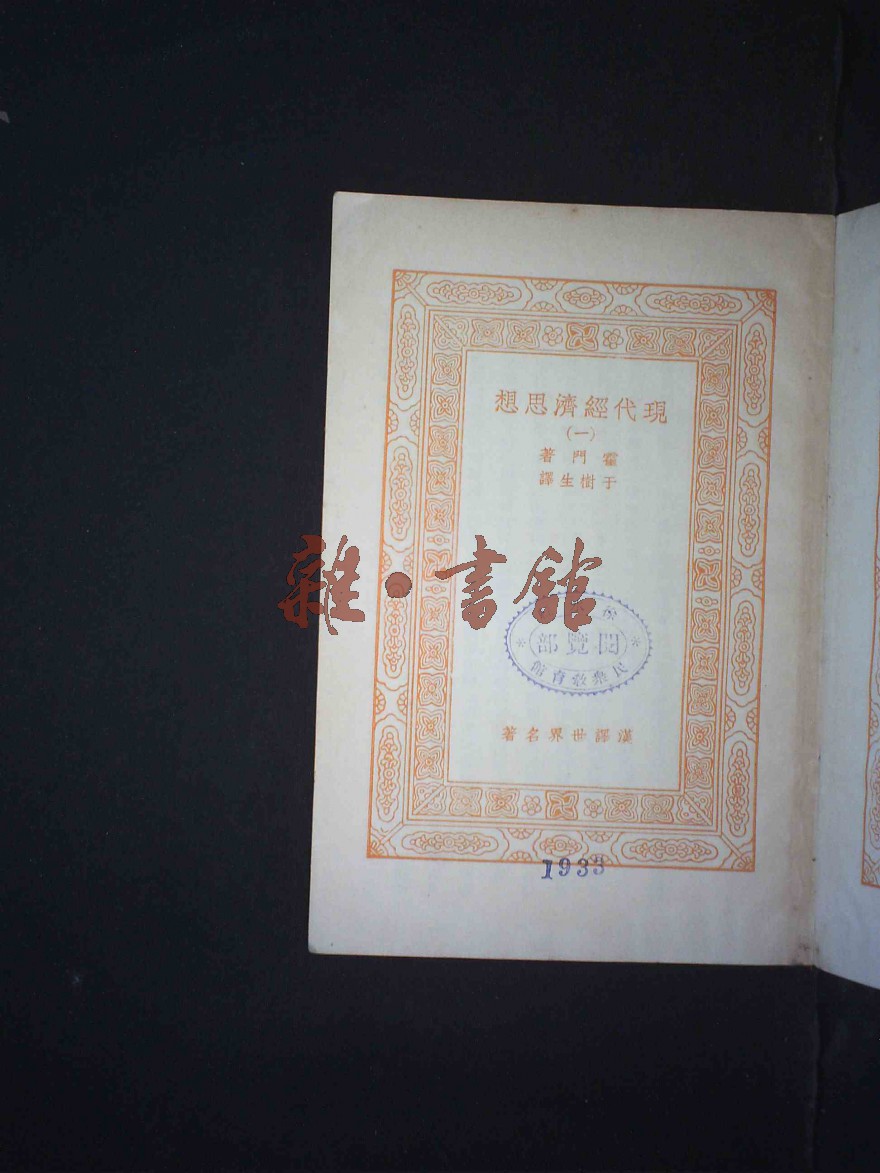 現代經濟思想
(一)
霍門著
于樹生譯
雜·書館
閱覽部
民衆教育館
漢譯世界名著
1933